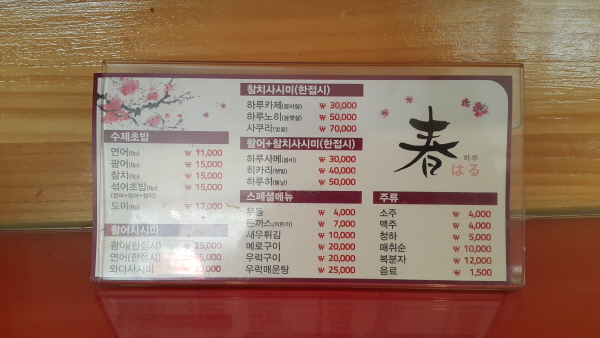 수제초밥
연어(8p) ₩ 11,000
광어(8p) ₩ 15,000
참치(8p) ₩ 15,000
섞어초밥(8p) ₩ 15,000
(연어+광어+참치)
도미(8p) ₩ 17,000
활어사시미
광어(한접시) ₩ 25,000
연어(한접시) 25,000
와다사시미
참치사시미(한접시)
하루카제(봄바람) ₩ 30,000
하루노히(봄햇살) ₩ 50,000
사쿠라(벚꽃) ₩ 70,000
활어+참치사시미(한접시)
하루사메(봄비) ₩ 30,000
히카리(햇빛) ₩ 40,000
하루히(봄날) ₩ 50,000
스페셜메뉴
우동 ₩ 4,000
돈까스(어린이) ₩ 7,000
새우튀김 ₩ 10,000
메로구이 ₩ 20,000
우럭구이 ₩ 20,000
우럭매운탕 ₩ 25,000
春
하루
はる
주류
소주 ₩ 4,000
맥주 ₩ 4,000
청하 ₩ 5,000
매취순 ₩ 10,000
복분자 ₩ 12,000
음료 ₩ 1,500